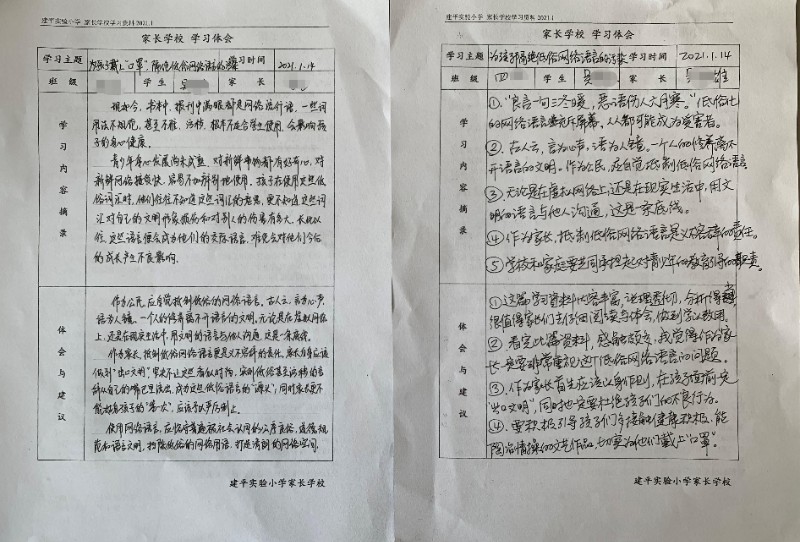 建平实验小学 家长学校学习资料2021.1
家长学校 学习体会
学习主题
为孩子戴上"口罩",隔绝低俗网络语言的污染
学习时间
2021.1.14
班 级
学 生
吴
家 长
学习内容摘录
现如今,书本中,报刊中满眼都是网络流行语,一些词
用法不规范,甚至不雅、污秽,根本不适合学生使用,会影响孩
子的身心健康。
青少年身心发展尚未成熟,对新鲜事物都有好奇心,对
新鲜网络接受快,容易不加辨别地使用。孩子在使用这些低
俗词汇时,他们往往不知道这些词汇的危害,更不知道这些词
汇对自己的文明形象损伤和对别人的伤害有多大,长此以
往,这些语言便会成为他们的交际语言,难免会对他们今后
的成长产生不良影响。
体会与建议
作为公民,应自觉抵制低俗的网络语言。古人云,言为心声,
语为人镜。一个人的修养离不开语言的文明。无论是在虚拟网络上,
还是在现实生活中,用文明的语言与他人沟通,这是一条底线。
作为家长,抵制低俗网络语言更是义不容辞的责任。家长自身应该
做到"出口文明",
同时家长更不
使用网络语言,应恪守普遍被社会认同的公序良俗,遵循规
范和语言文明,扫除低俗的网络用语,打造清朗的网络空间。
建平实验小学家长学校
建平实验小学 家长学校学习资料2021.1
家长学校 学习体会
学习主题
为孩子隔绝低俗网络语言的污染
学习时间
2021.1.14
班 级
四
学 生
吴
家 长
吴 雄
学习内容摘录
①."良言一句三冬暖,恶语伤人六月寒。"低俗化
的网络语言充斥屏幕,人人都可能成为受害者。
②.古人云,言为心声,语为人镜,一个人的修养离不
开语言的文明。作为公民,应自觉抵制低俗网络语言
③.无论是在虚拟网络上,还是在现实生活中,用文
明的语言与他人沟通,这是一条底线。
④.作为家长,抵制低俗网络语言是义不容辞的责任。
⑤.学校和家庭要共同承担起对青少年的教育引导的职责。
体会与建议
①这篇学习资料内容丰富,说理透切,分析得当
很值得家长们去仔细阅读与体会,做到学以致用。
②.看完此篇资料,感触颇多,我觉得作为家
长一定要非常重视这个低俗网络语言的问题。
③.作为家长首先应该以身作则,在孩子面前先
"出口文明",同时也一定要杜绝孩子们的不良行为。
④.要积极引导孩子们多接触健康积极、能
陶冶情操的文艺作品,切实为他们戴上"口罩"。
建平实验小学家长学校